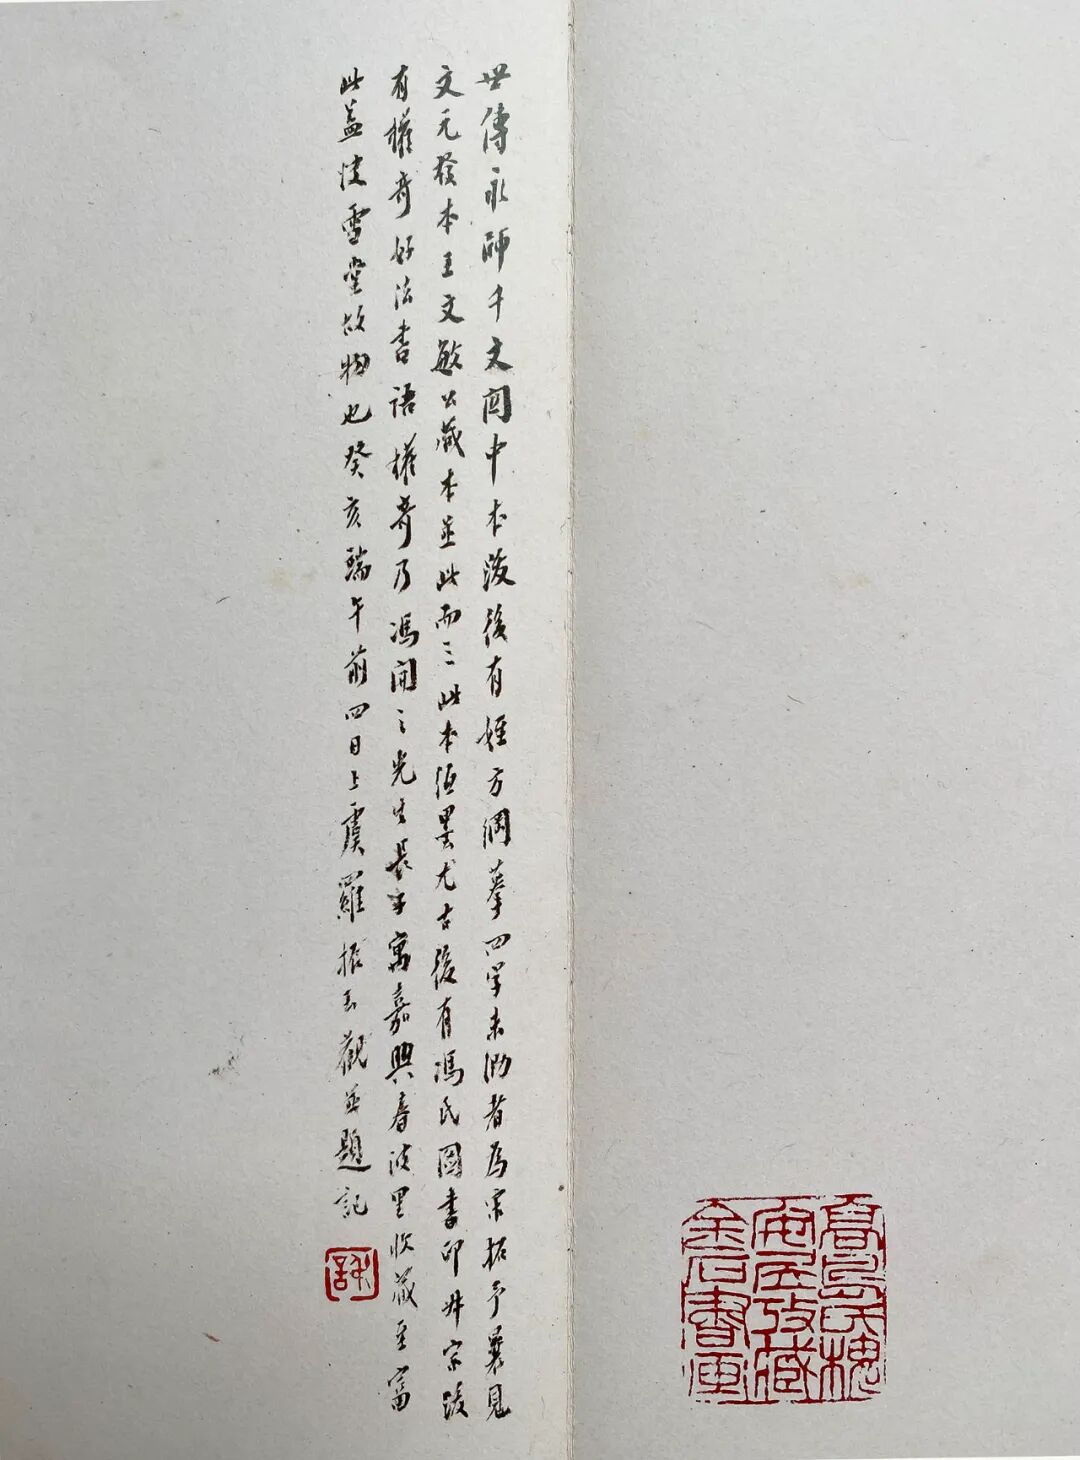 世傳永師千文關中本跋後有姪方綱摹四字未泐者爲宋拓予曩見
文元發本王文敏公藏本並此而三此本紙墨尤古後有馮氏圖書印井宗跋
有權奇好法書語權奇乃馮開之先生長子寓嘉興春波里收藏至富
此蓋快雪堂故物也癸亥端午前四日上虞羅振玉觀並題記
高島氏槐
安居攷藏
金石書画